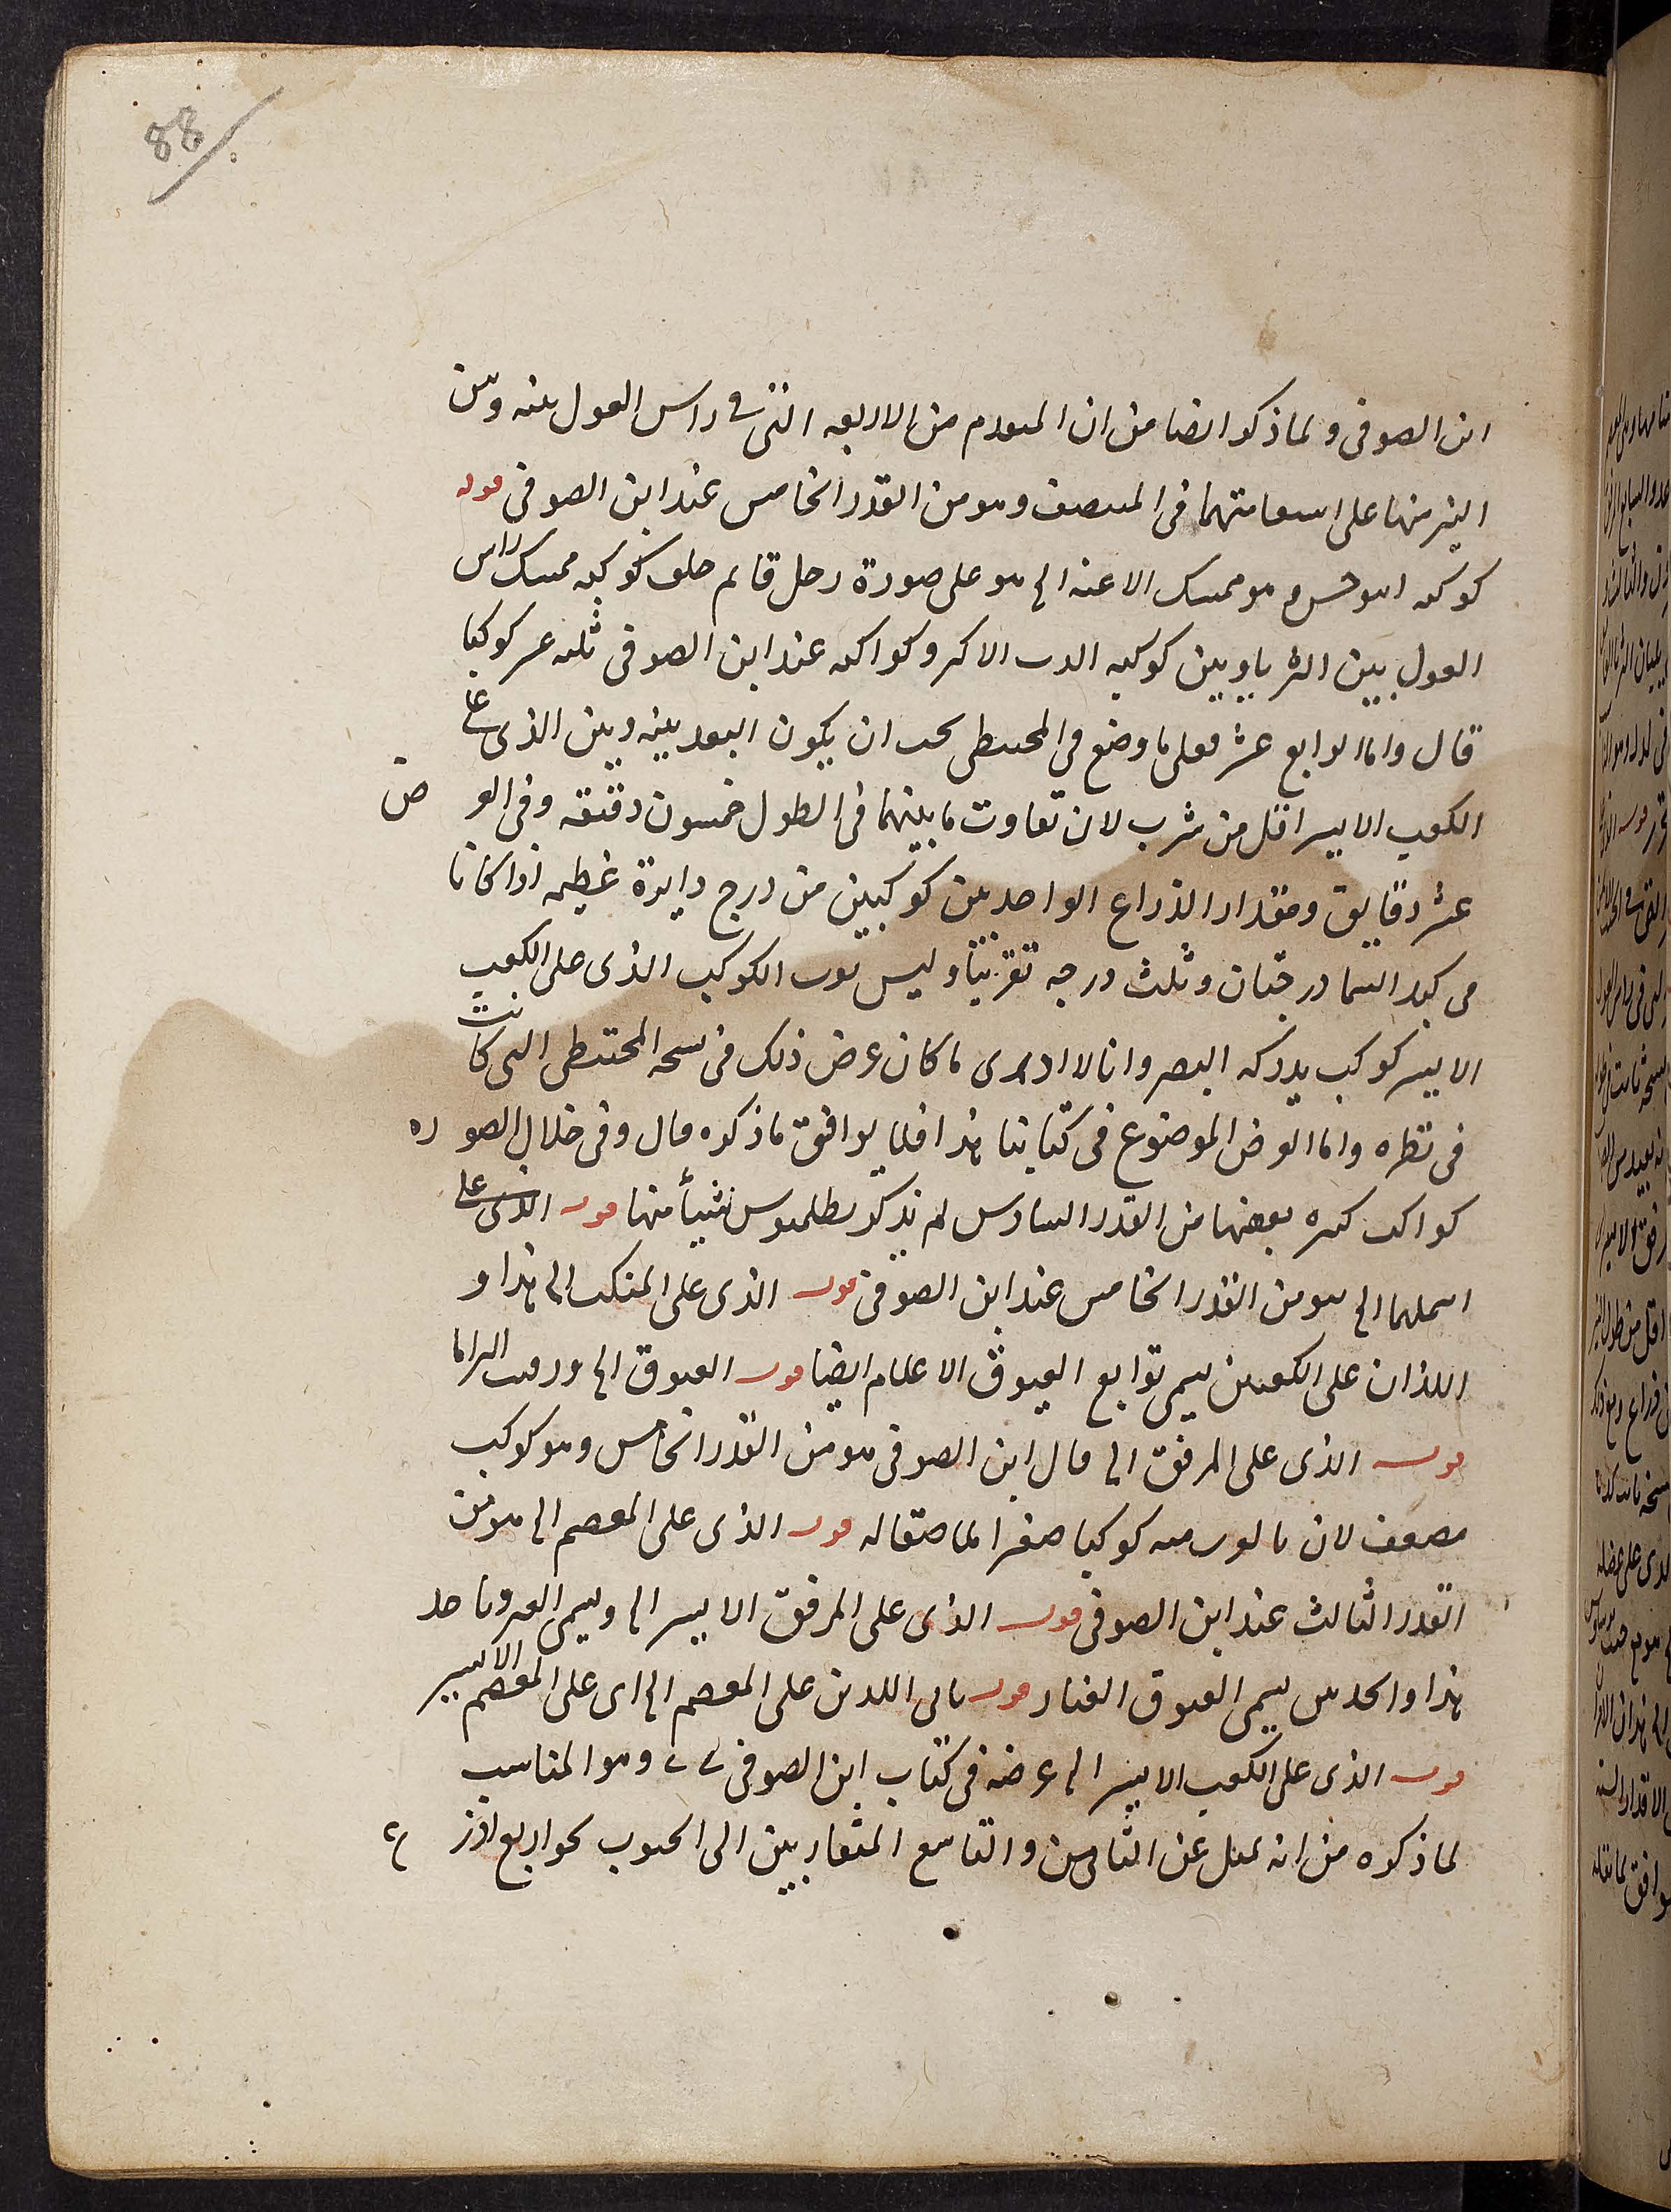 88
ابن الصوفى ولما ذكر ايضا من ان المتقدم من الاربعه التى فى راس الغول بينه وبين
النير منها على استقامتهما فى المنتصف وهو من القدر الخامس عند ابن الصوفى قوله
كوكبه هو ممسك الاعنه الى هو على صورة رجل قايم خلف كوكبه ممسك راس
الغول بين الثريا وبين كوكبه الدب الاكبر وكواكبه عند ابن الصوفى ثلثه عشر كوكبا
قال واما الرابع عشر فعلى ما وضع فى المجسطى يجب ان يكون البعد بينه وبين الذى على
الكعب الايسر اقل من شبر لان تفاوت ما بينهما فى الطول خمسون دقيقه وفى العرض
عشر دقايق ومقدار الذراع الواحد بين كوكبين من درج دايرة عظيمه اذا كانا
فى كبد السما درجتان وثلث درجه تقريبا وليس بقرب الكوكب الذى على الكعب
الايسر كوكب يدركه البصر وانا لا ادرى ما كان عرض ذلك فى نسخه المجسطى التى كانت
فى نظره واما العرض الموضوع فى كتابنا هذا فلا يوافق ما ذكره قال وفى خلال الصوره
كواكب كثيره بعضها من القدر السادس لم يذكر بطلميوس شيأ منها قوله الذى على
اسفلهما الى هو من القدر الخامس عند ابن الصوفى قوله الذى على المنكب الى هذا و
اللذان على الكعبين يسمى توابع العيوق الاعلام ايضا قوله العيوق الى
قوله الذى على المرفق الى قال ابن الصوفى هو من القدر الخامس وهو كوكب
مضعف لان بالقرب منه كوكبا صغيرا ملاصقا له قوله الذى على المعصم الى هو من
القدر الثالث عند ابن الصوفى قوله الذى على المرفق الايسر الى ويسمى العنز
هذا والجدين يسمى العيوق العناز قوله تالى اللذين على المعصم الى اى على المعصم الايسر
قوله الذى على الكعب الايسر الى عرضه فى كتاب ابن الصوفى وهو المناسب
لما ذكره من انه يميل عن الثامن والتاسع المتقاربين الى الجنوب نحو اربع اذرع